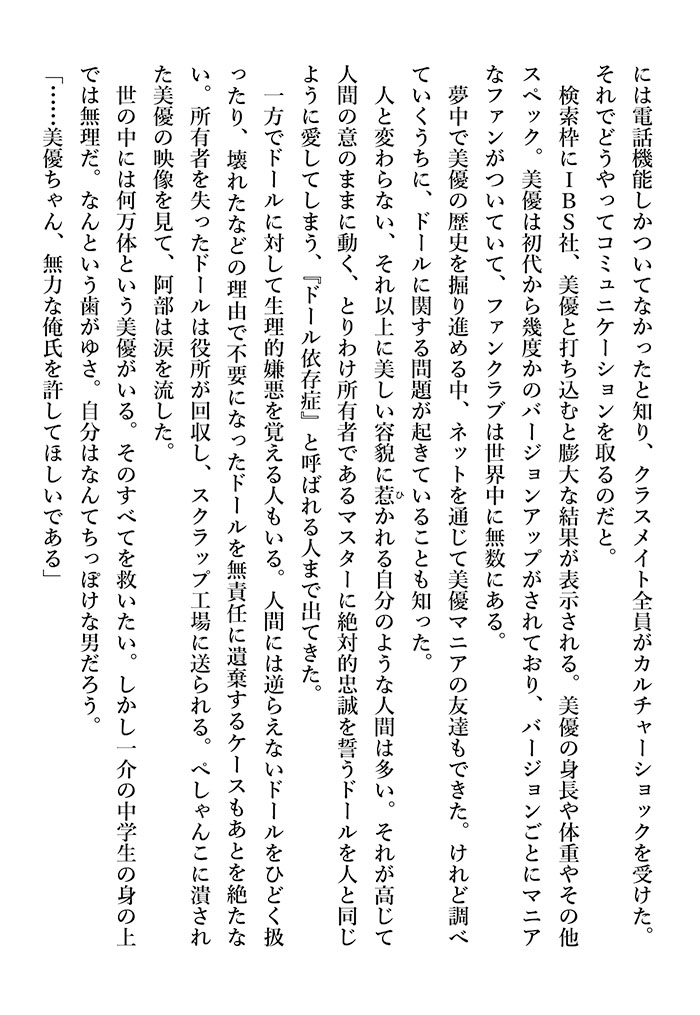 には電話機能しかついてなかったと知り、クラスメイト全員がカルチャーショックを受けた。
それでどうやってコミュニケーションを取るのだと。
　検索枠にＩＢＳ社、美優と打ち込むと膨大な結果が表示される。美優の身長や体重やその他
スペック。美優は初代から幾度かのバージョンアップがされており、バージョンごとにマニア
なファンがついていて、ファンクラブは世界中に無数にある。
　夢中で美優の歴史を掘り進める中、ネットを通じて美優マニアの友達もできた。けれど調べ
ていくうちに、ドールに関する問題が起きていることも知った。
　人と変わらない、それ以上に美しい容貌に惹ひかれる自分のような人間は多い。それが高じて
人間の意のままに動く、とりわけ所有者であるマスターに絶対的忠誠を誓うドールを人と同じ
ように愛してしまう、『ドール依存症』と呼ばれる人まで出てきた。
　一方でドールに対して生理的嫌悪を覚える人もいる。人間には逆らえないドールをひどく扱
ったり、壊れたなどの理由で不要になったドールを無責任に遺棄するケースもあとを絶たな
い。所有者を失ったドールは役所が回収し、スクラップ工場に送られる。ぺしゃんこに潰され
た美優の映像を見て、阿部は涙を流した。
　世の中には何万体という美優がいる。そのすべてを救いたい。しかし一介の中学生の身の上
では無理だ。なんという歯がゆさ。自分はなんてちっぽけな男だろう。
「……美優ちゃん、無力な俺氏を許してほしいである」